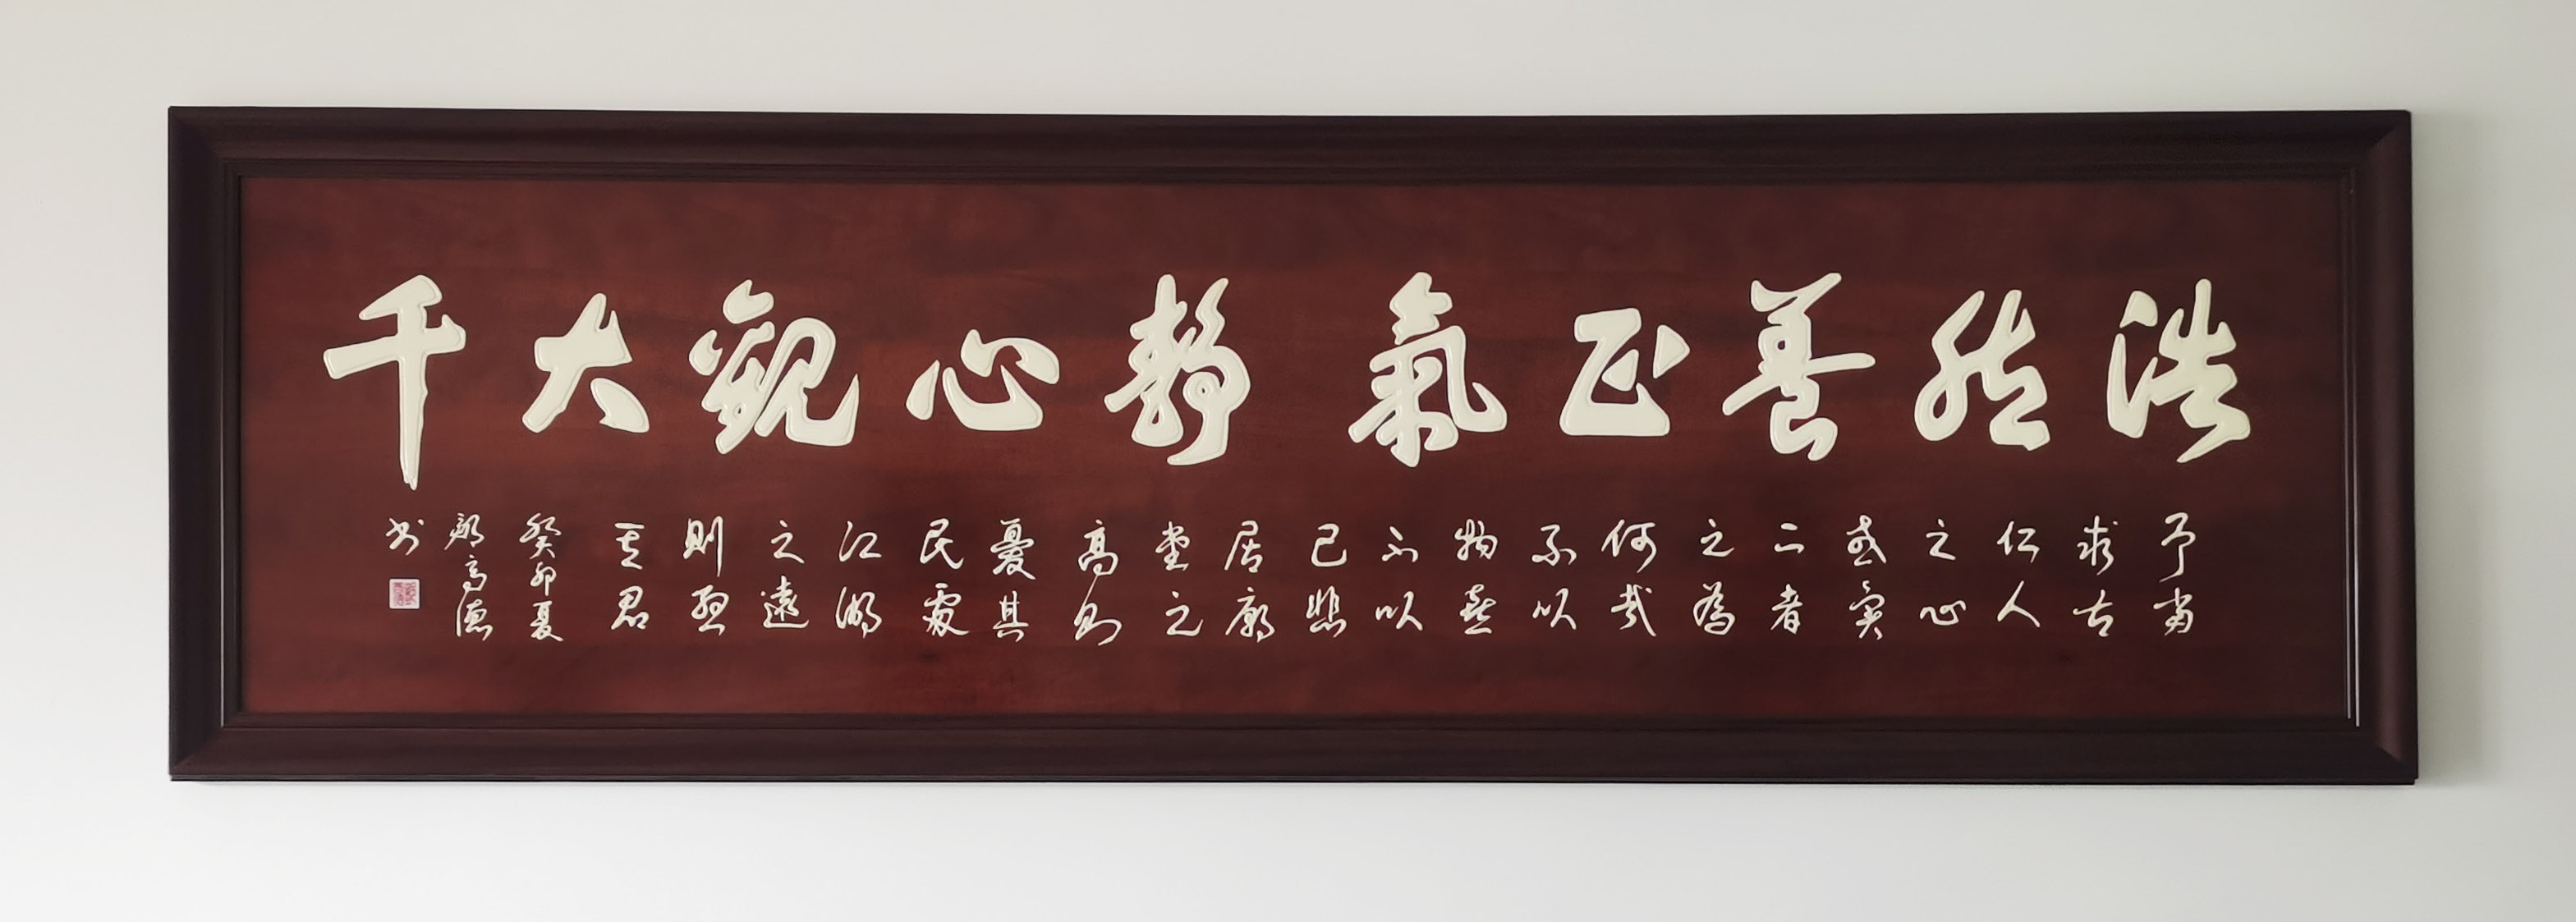 浩然養正氣 靜心觀大千
予嘗
求古
仁人
之心
或異
二者
之為
何哉
不以
物喜
不以
己悲
居廟
堂之
高則
憂其
民處
江湖
之遠
則憂
其君
癸卯夏
高德
书